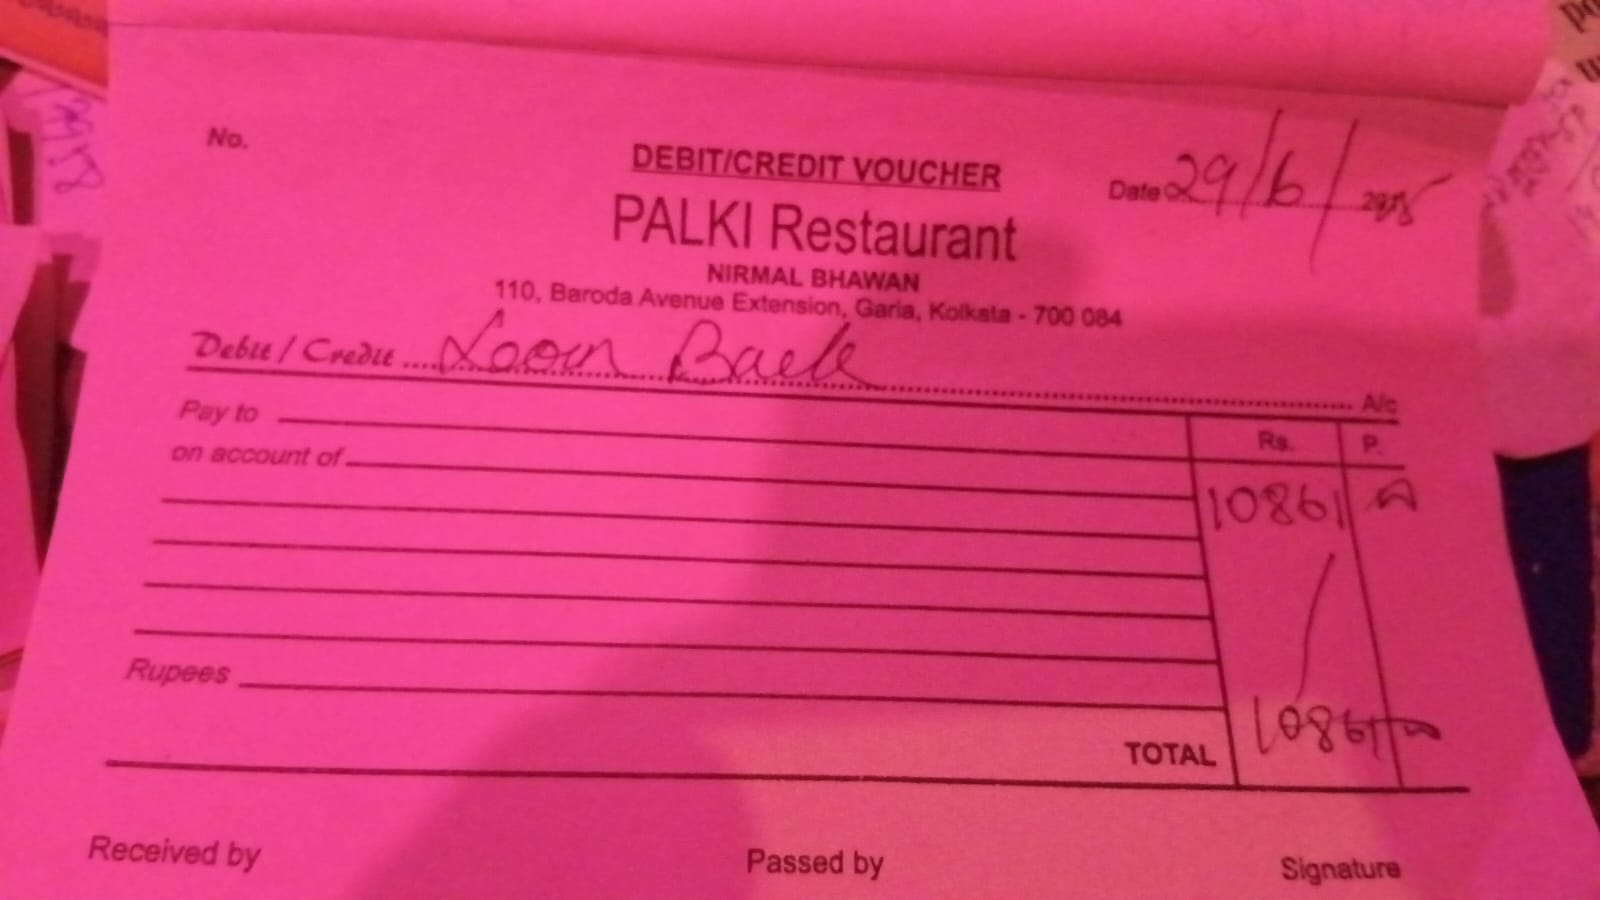 No.
DEBIT/CREDIT VOUCHER
Date 29/6/
PALKI Restaurant
NIRMAL BHAWAN
110, Baroda Avenue Extension, Garia, Kolkata - 700 084
Debit / Credit .... Loan Back A/c
Pay to
on account of
Rs. P.
10861
Rupees
TOTAL 10861
Received by Passed by Signature